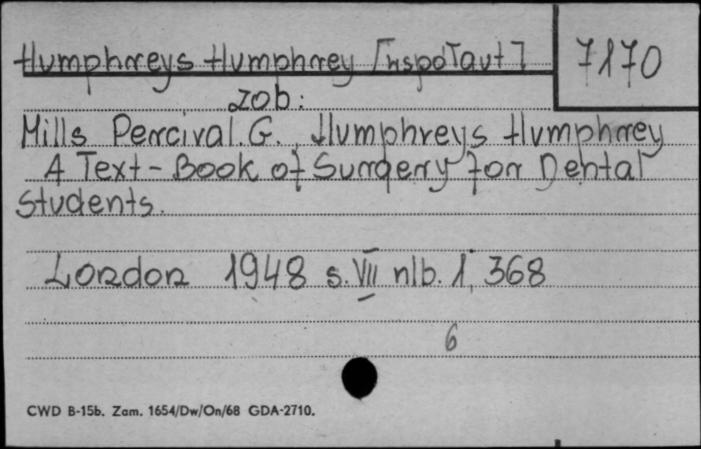 Humphreys Humphrey [współaut] 7170
zob:
Mills Percival. G., Humphreys Humphrey
A Text-Book of Surgery for Dental
Students.
London 1948 s. VIII nlb. 1, 368
6
CWD B-15b. Zam. 1654/Dw/On/68 GDA-2710.